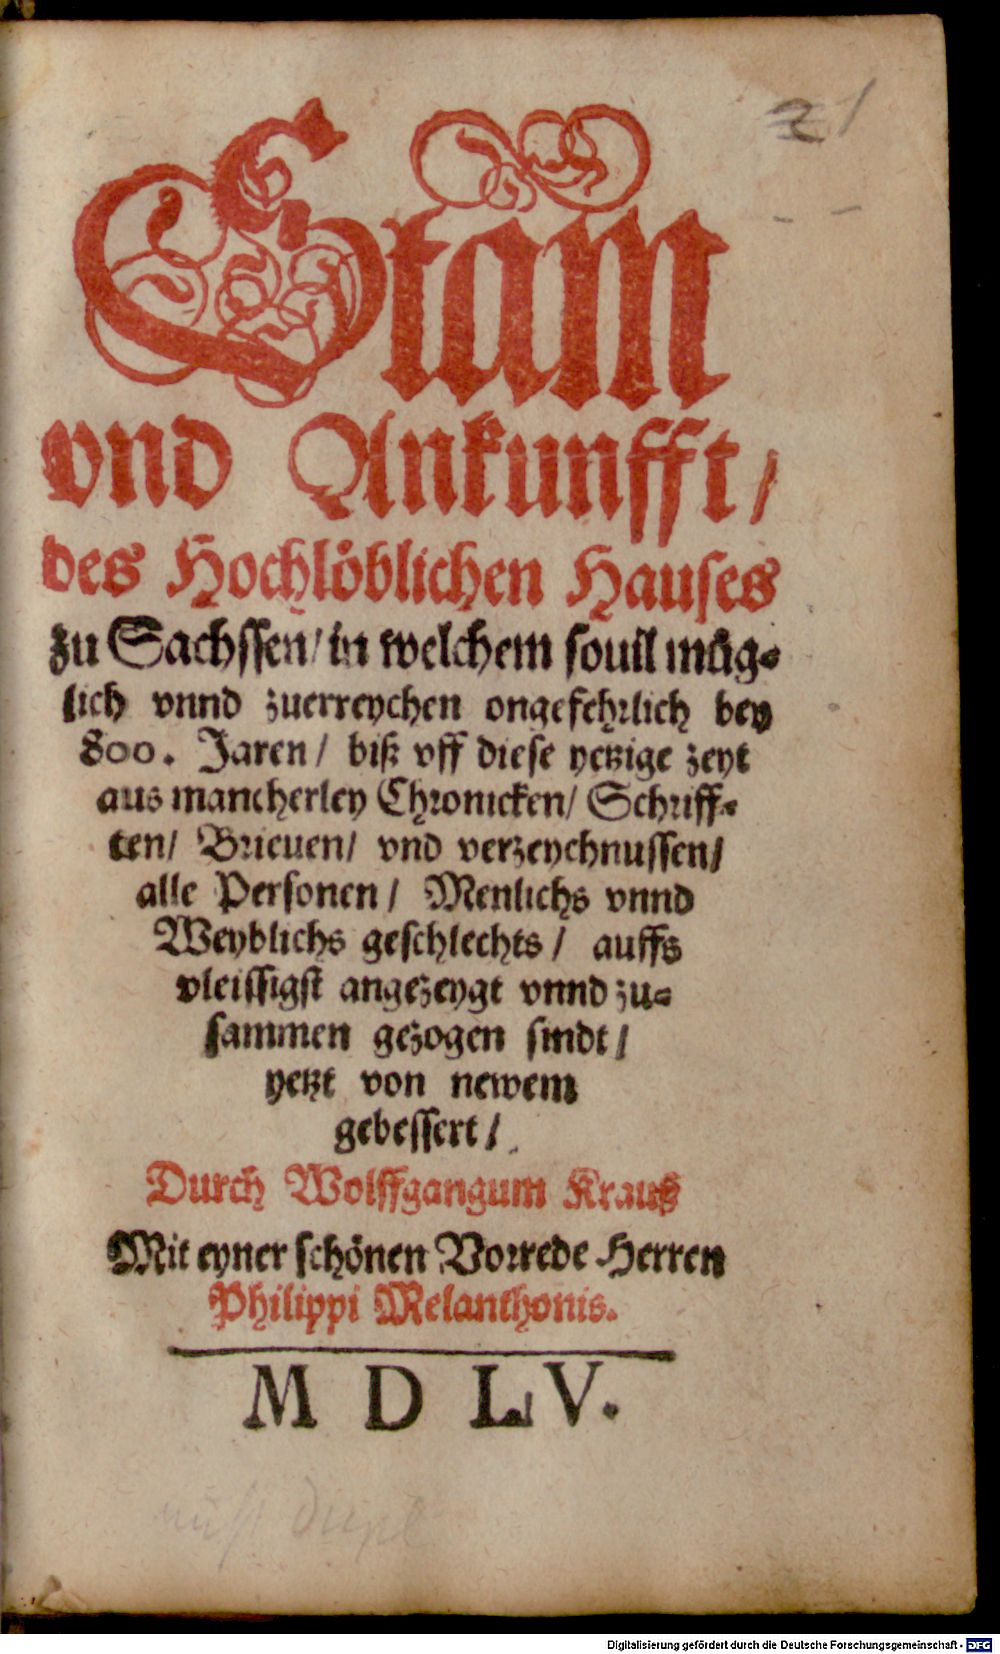 21
Stam
vnd Ankunfft/
des Hochlöblichen Hauses
zu Sachssen/ in welchem souil müg-
lich vnnd zuerreychen ongefehrlich bey
800. Jaren/ biß vff diese yetzige zeyt
aus mancherley Chronicken/ Schriff-
ten/ Brieuen/ vnd verzeychnussen/
alle Personen/ Menlichs vnnd
Weyblichs geschlechts/ auffs
vleissigst angezeygt vnnd zu-
sammen gezogen sindt/
yetzt von newem
gebessert/
Durch Wolffgangum Kraus
Mit eyner schönen Vorrede Herren
Philippi Melanthonis.
M D LV.
Digitalisierung gefördert durch die Deutsche Forschungsgemeinschaft - DFG